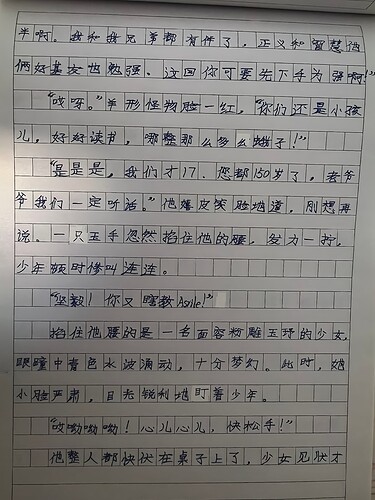 半啊。我和我兄弟都有伴了，正义和智慧他
俩好基友也勉强、这回你可要先下手为强啊！"
"哎呀。"羊形怪物脸一红，"你们还是小孩
儿，好好读书，哪整那么多幺蛾子！"
"是是是，我们才17、您都150岁了，老爷
爷我们一定听话。"他嬉皮笑脸地道，刚想再
说。一只玉手忽然掐住他的腰，发力一拧。
少年顿时惨叫连连。
"坚毅！你又瞎教Agile！"
掐住他腰的是一名面容粉雕玉琢的少女，
眼瞳中青色水波涌动，十分梦幻。此时，她
小脸严肃，目光锐利地盯着少年。
"哎呦呦呦！心儿心儿，快松手！"
他整人都快伏在桌子上了，少女见状才